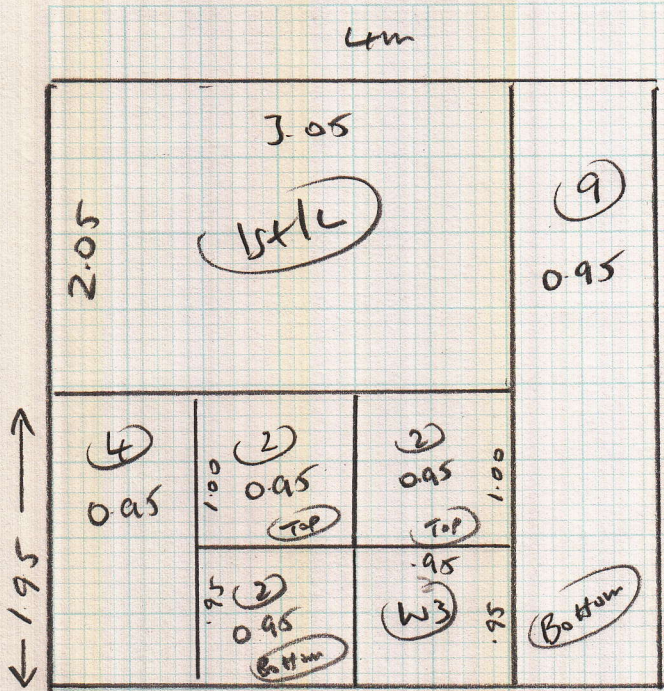 4m
3.05
2.05
1st/L
9
0.95
1.95
4
0.95
1.00
2
0.95
Top
2
0.95
1.00
Top
.95
2
0.95
Bottom
.95
W3
.95
Bottom